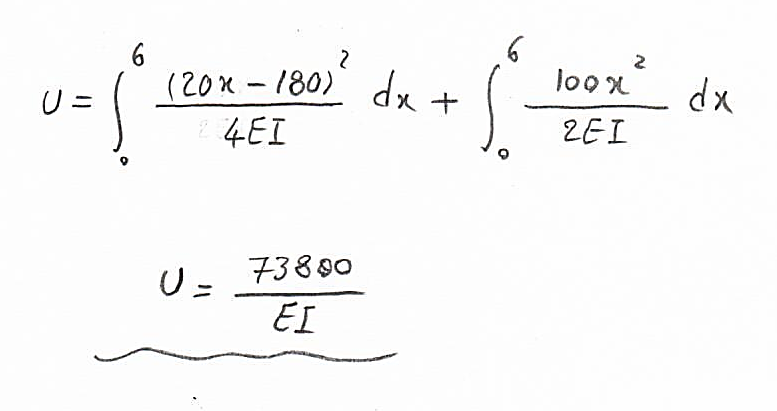 U = ∫₀⁶ (20x - 180)² / 4EI dx + ∫₀⁶ 100x² / 2EI dx
U = 73800 / EI